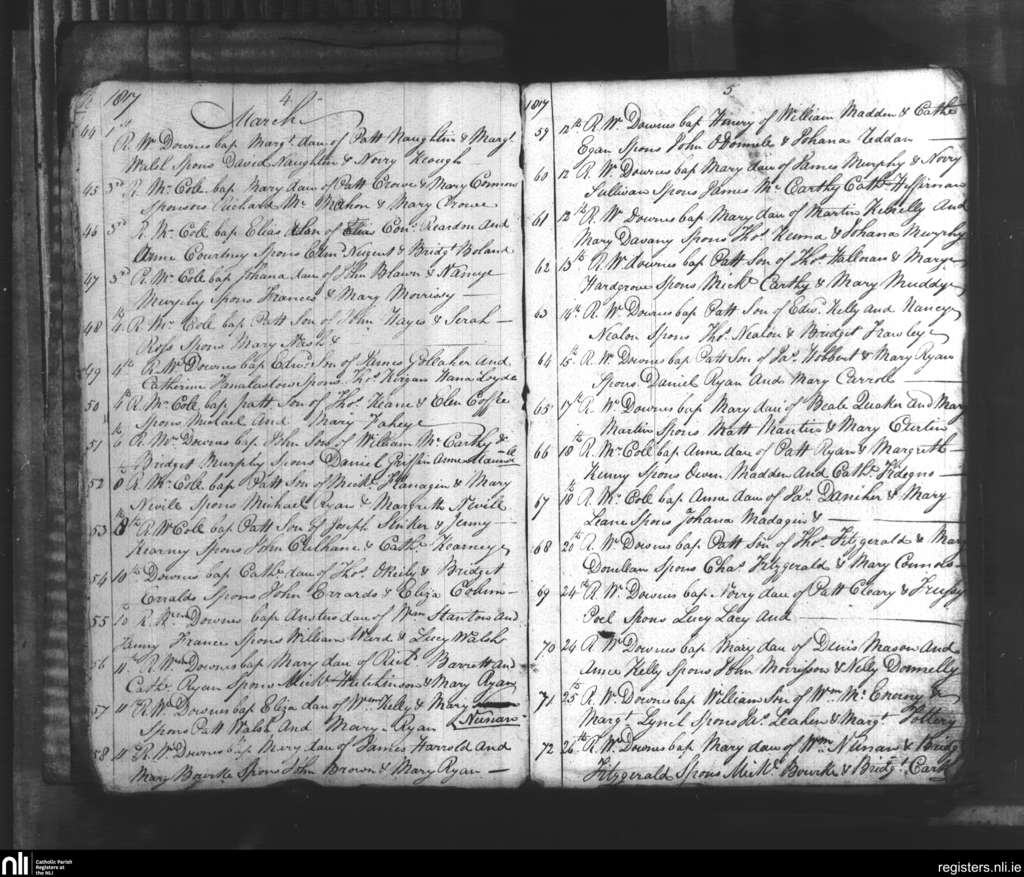 1817 4
March
44 1st R. Wm Downes bap Margt daur of Patt Naughtin & Margt
Walsh Spons David Naughtin & Norry Keough
45 3rd R. Mr. Cole bap Mary daur of Patt Crowe & Mary Connors
Sponsors Michael Mc Mahon & Mary Crowe
46 3rd R. Mr. Cole bap Elias Son of Con: Reardon and
Anne Courtney Spons Nugent & Bridgt Boland
47 3rd R. Mr Cole bap Johana daur of John Blawn &
Murphy Spons Francis & Mary Morrissy
48 4 R. Mr. Cole bap Patt Son of John Hayes & Serah
Ross Spons Mary &
49 4th R. Wm Downes bap Edwd Son of James And
Catherine Spons Thos Horgan
50 4 R. Mr. Cole bap patt Son of Thos Keane & Elen Coffee
Spons Michael And Mary Faheye
51 6 R. Wm Downes bap John Son of William Mc Carthy &
Bridget Murphy Spons Daniel Griffin Anne
52 8 R. Mr. Cole bap Patt Son of Michl Flanagin & Mary
Nevile Spons Michael Ryan & Margreth Nevile
53 R. Mr Cole bap Patt Son of Joseph & Jenny
Kearny Spons John Culhane & Cathe Kearneye
54 10th Downes bap Cathe daur of Thos OReily & Bridget
Erralds Spons John Errards & Eliza
55 10 R. Wm Downes bap daur of Wm Stanton And
Fanny Francis Spons William Ward & Lucy Walsh
56 11th R. Wm Downes bap Mary daur of Richd Barrett and
Cathe Ryan Spons Michl Hutchinson & Mary Ryan
57 11th R. Wm Downes bap Eliza daur of Wm Kelly & Mary
Nunan
Spons Patt Walsh And Mary Ryan
58 11th R. Wm Downes bap Mary daur of James Harrold And
Mary Bourke Spons John Brown & Mary Ryan
1817 5
59 12th R. Wm Downes bap Henry of William Madden & Cathe
Egan Spons John ODonnele & Johana
60 12 R. Wm Downes bap Mary daur of James Murphy & Norry
Sullivan Spons James Mc Carthy Cathe Heffirnan
61 12th R. Wm Downes bap Mary daur of Martin And
Mary Davany Spons Thos & Johana Murphy
62 13th R. W. downes bap Patt Son of Thos Halloran & Marye
Hardgrove Spons Michl Carthy & Mary Muddye
63 14th R. Wm Downes bap Patt Son of Edwd Kelly and Nancy
Nealon Spons Thos Nealon & Bridget Frawleye
64 15th R. Wm Downes bap Patt Son of Jas & Mary Ryan
Spons Daniel Ryan And Mary Carroll
65 17th R. Wm Downes bap Mary daur of Beale Quaker And Mary
Martin Spons Matt & Mary
66 18th R. Mr. Cole bap Anne daur of Patt Ryan & Margreth
Henny Spons Owen Madden And Cathe
67 18 R. Mr. Cole bap Anne daur of Jas Daniher & Mary
Leane Spons Johana Madagin &
68 20th R. Wm Downes bap Patt Son of Thos Fitzgerald & Mary
Spons Chas Fitzgerald & Mary Connols
69 24th R. Wm Downes bap Norry daur of Patt Cleary &
Poel Spons Lucy Lacy And
70 24 R. Wm Downes bap Mary daur of Denis Mason And
Anne Kelly Spons John Morrison & Nelly Donnelly
71 25th R. Wm Downes bap William Son of Wm Mc Enerny &
Margt Lynch Spons Jas Leahen & Margt Slattery
72 26th R. Wm Downes bap Mary daur of Wm Nunan & Bridgt
Fitzgerald Spons Michl Bourke & Bridgt
nli Catholic Parish
Registers at
the NLI
registers.nli.ie